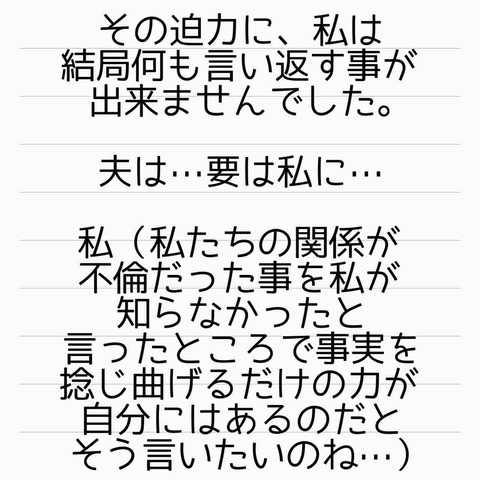 その迫力に、私は
結局何も言い返す事が
出来ませんでした。
夫は…要は私に…
私（私たちの関係が
不倫だった事を私が
知らなかったと
言ったところで事実を
捻じ曲げるだけの力が
自分にはあるのだと
そう言いたいのね…）